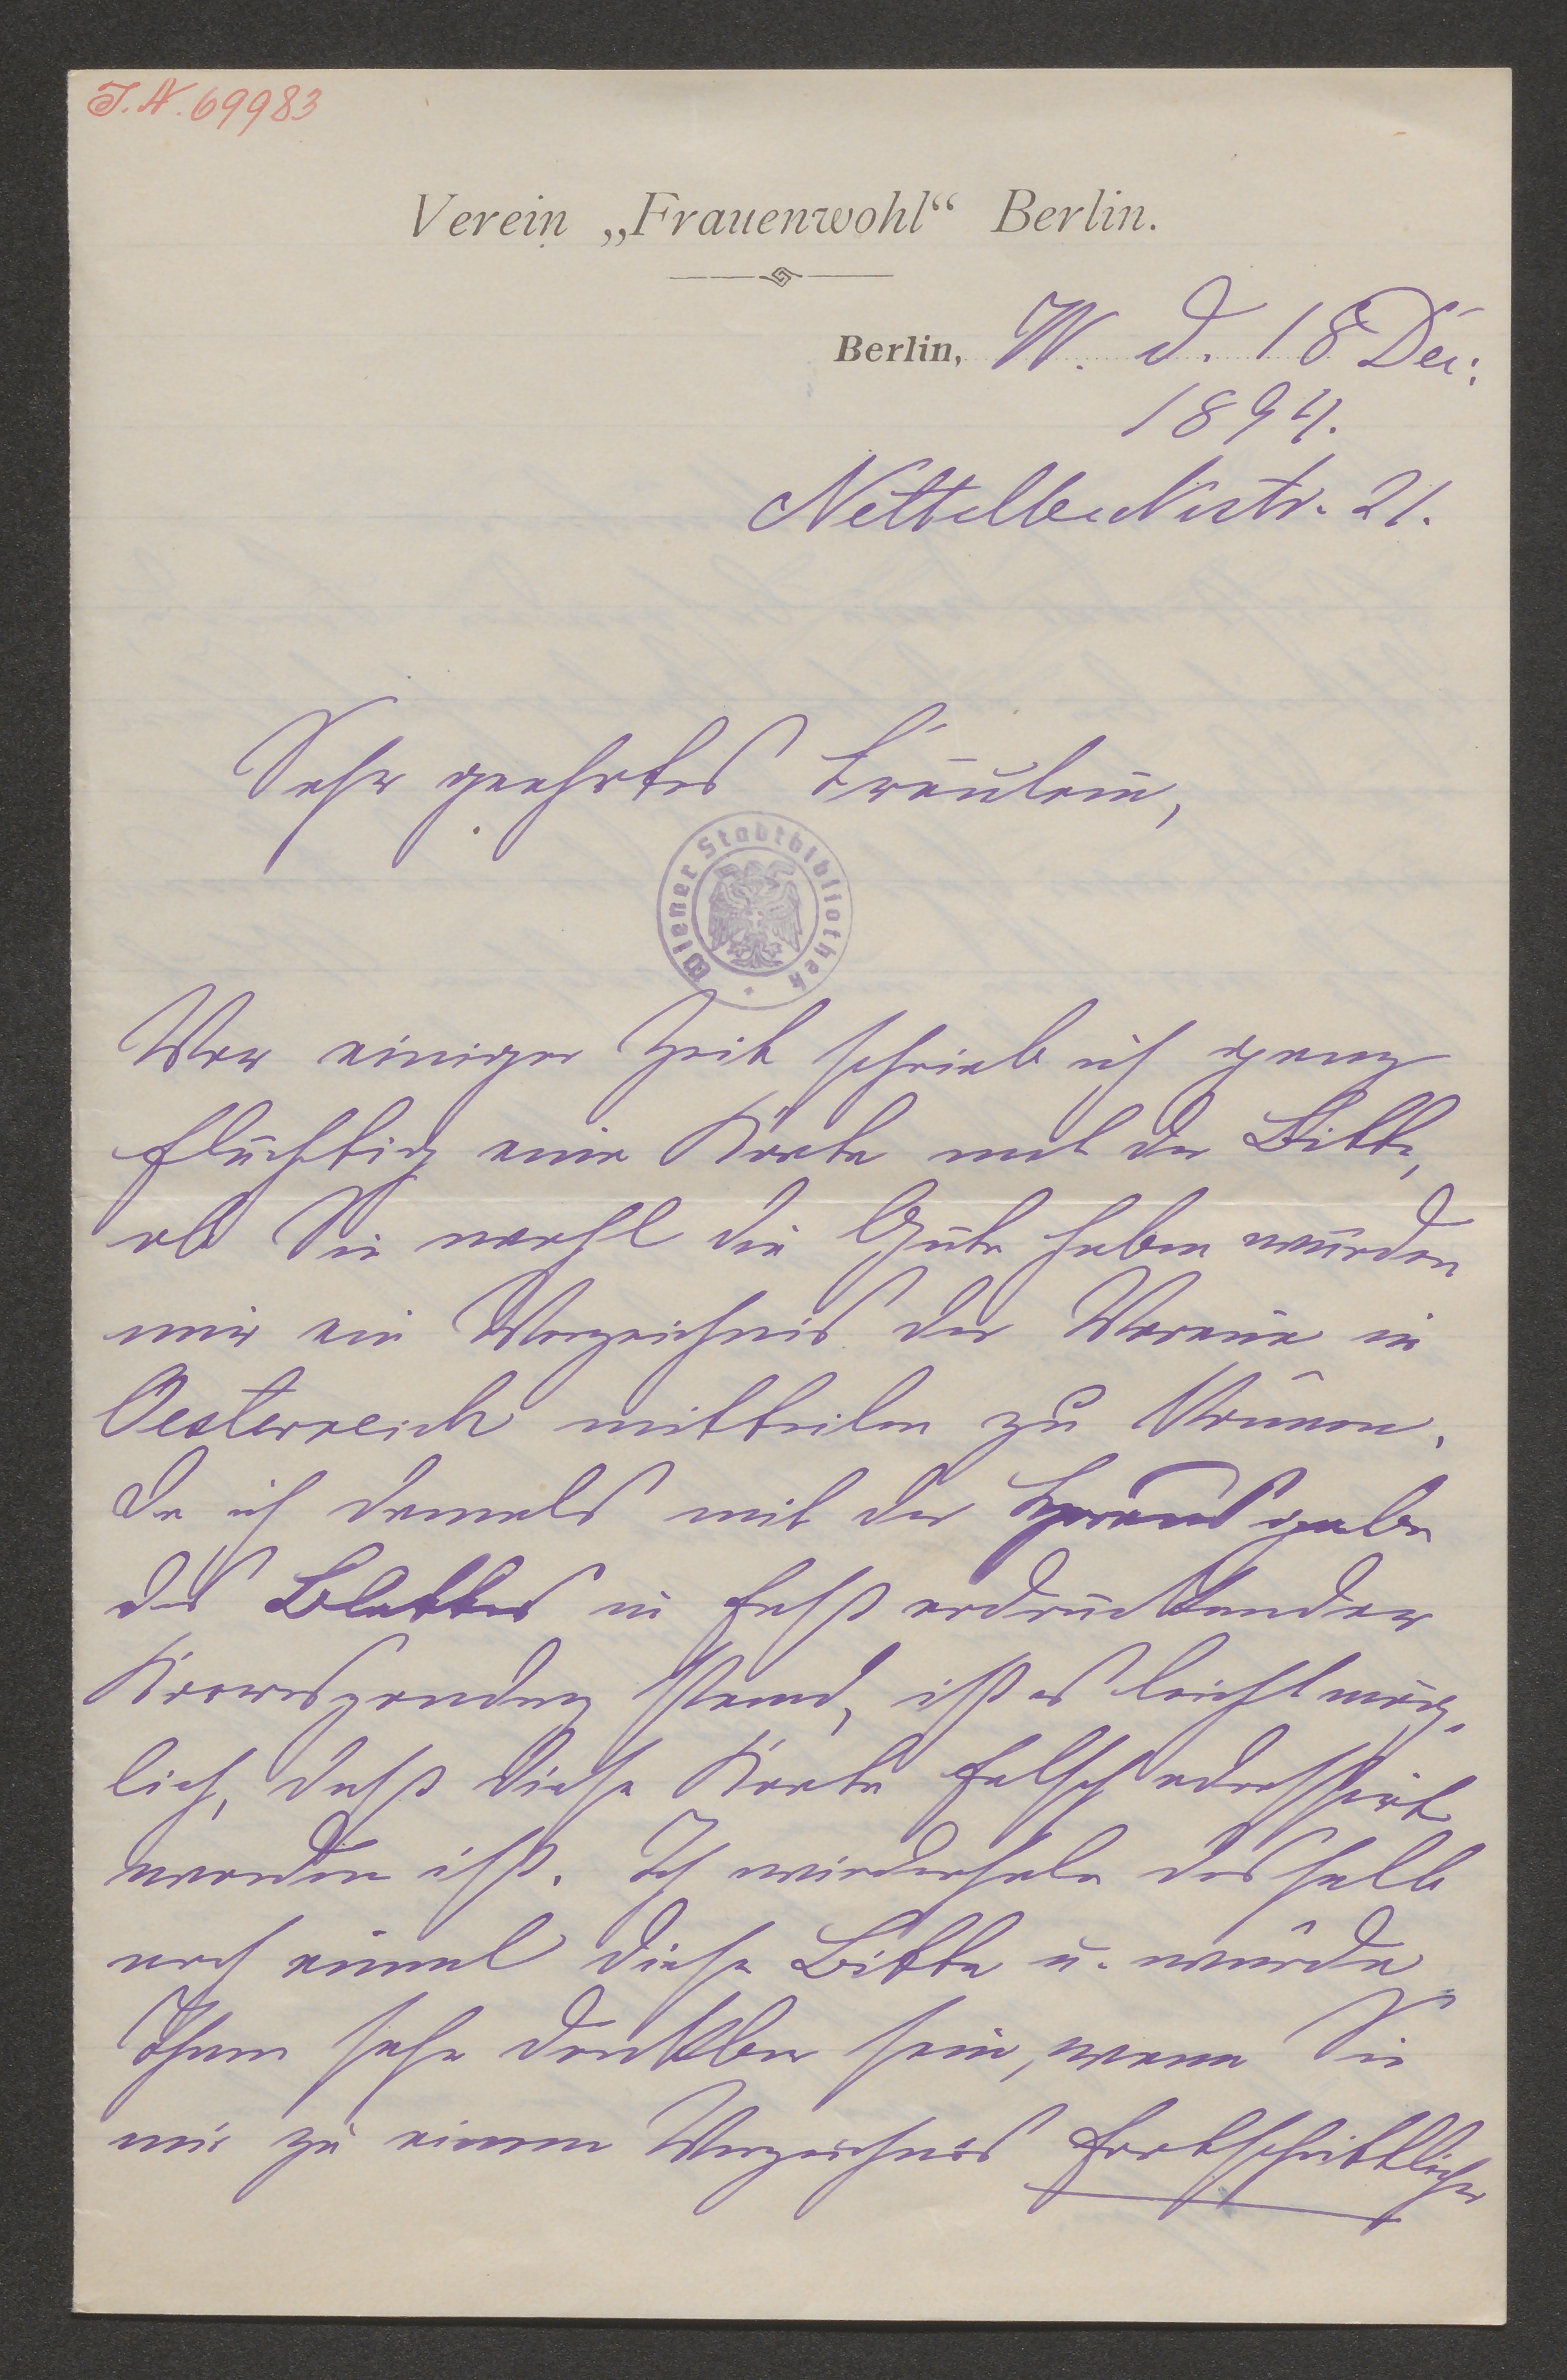 I.N. 69983
Verein „Frauenwohl“ Berlin.
Berlin, W. d. 18 Dez.
1894.
Nettelbeckstr. 21.
Sehr geehrtes Fräulein,
Wiener Stadtbibliothek
Vor einiger Zeit schrieb ich ganz
flüchtig eine Karte mit der Bitte,
ob Sie wohl die Güte haben würden
mir ein Verzeichnis der Vereine in
Oesterreich mitteilen zu können.
Da ich damals mit der Herausgabe
des Blattes in fast erdrückender
Korrespondenz stand, ist es leicht mög-
lich, daß diese Karte falsch adressirt
worden ist. Ich wiederhole deshalb
noch einmal diese Bitte u. würde
Ihnen sehr dankbar sein, wenn Sie
mir zu einem Verzeichnis fortschrittlicher